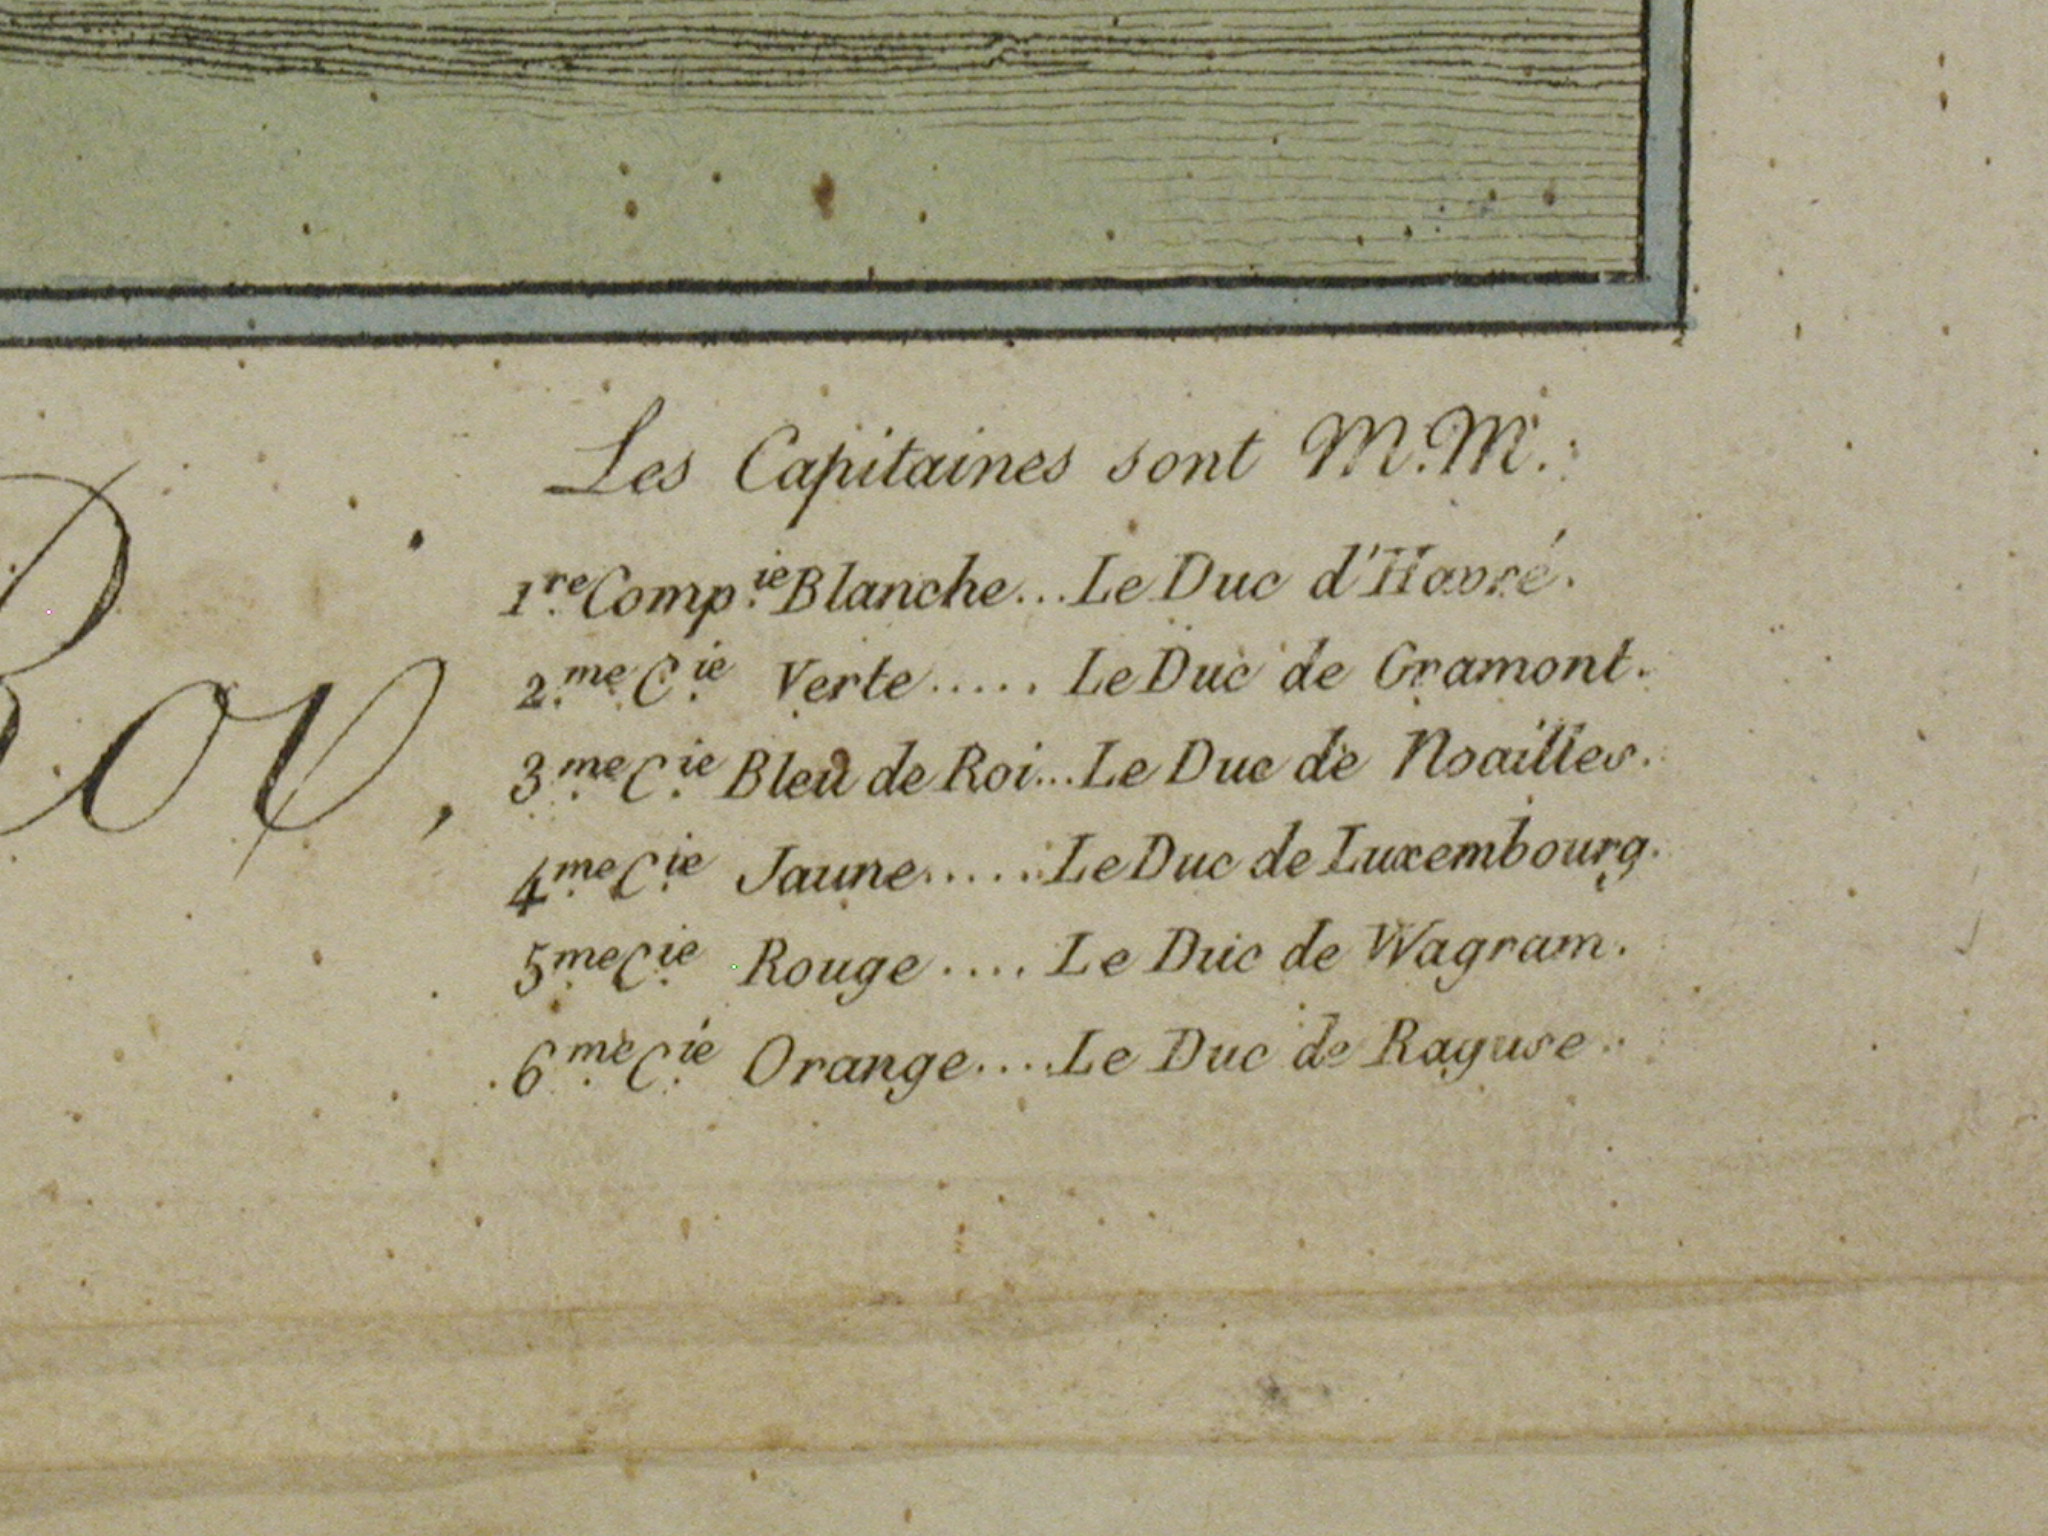 Les Capitaines sont M.M.:
1.re Comp.ie Blanche...Le Duc d'Havré.
2.me C.ie Verte.....Le Duc de Gramont.
Roi,
3.me C.ie Bleu de Roi...Le Duc de Noailles.
4.me C.ie Jaune.....Le Duc de Luxembourg.
5.me C.ie Rouge....Le Duc de Wagram.
6.me C.ie Orange....Le Duc de Raguse.